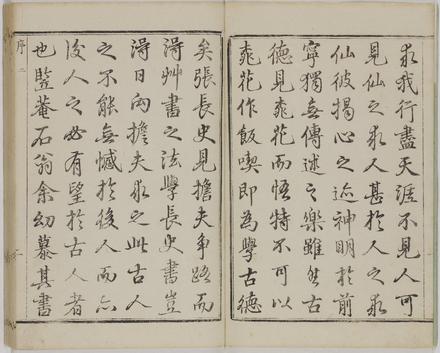 求我行盡天涯不見人可
見仙之求人甚於人之求
仙彼揭心之迹神明於前
寧獨無傳述之樂雖然古
德見桃花而悟特不可以
桃花作飯喫即為學古德
矣張長史見擔夫爭路而
得艸書之法學長史書豈
得日向擔夫求之此古人
之不能無憾於後人而亦
後人之必有望於古人者
也菴石翁余幼慕其書
序 二